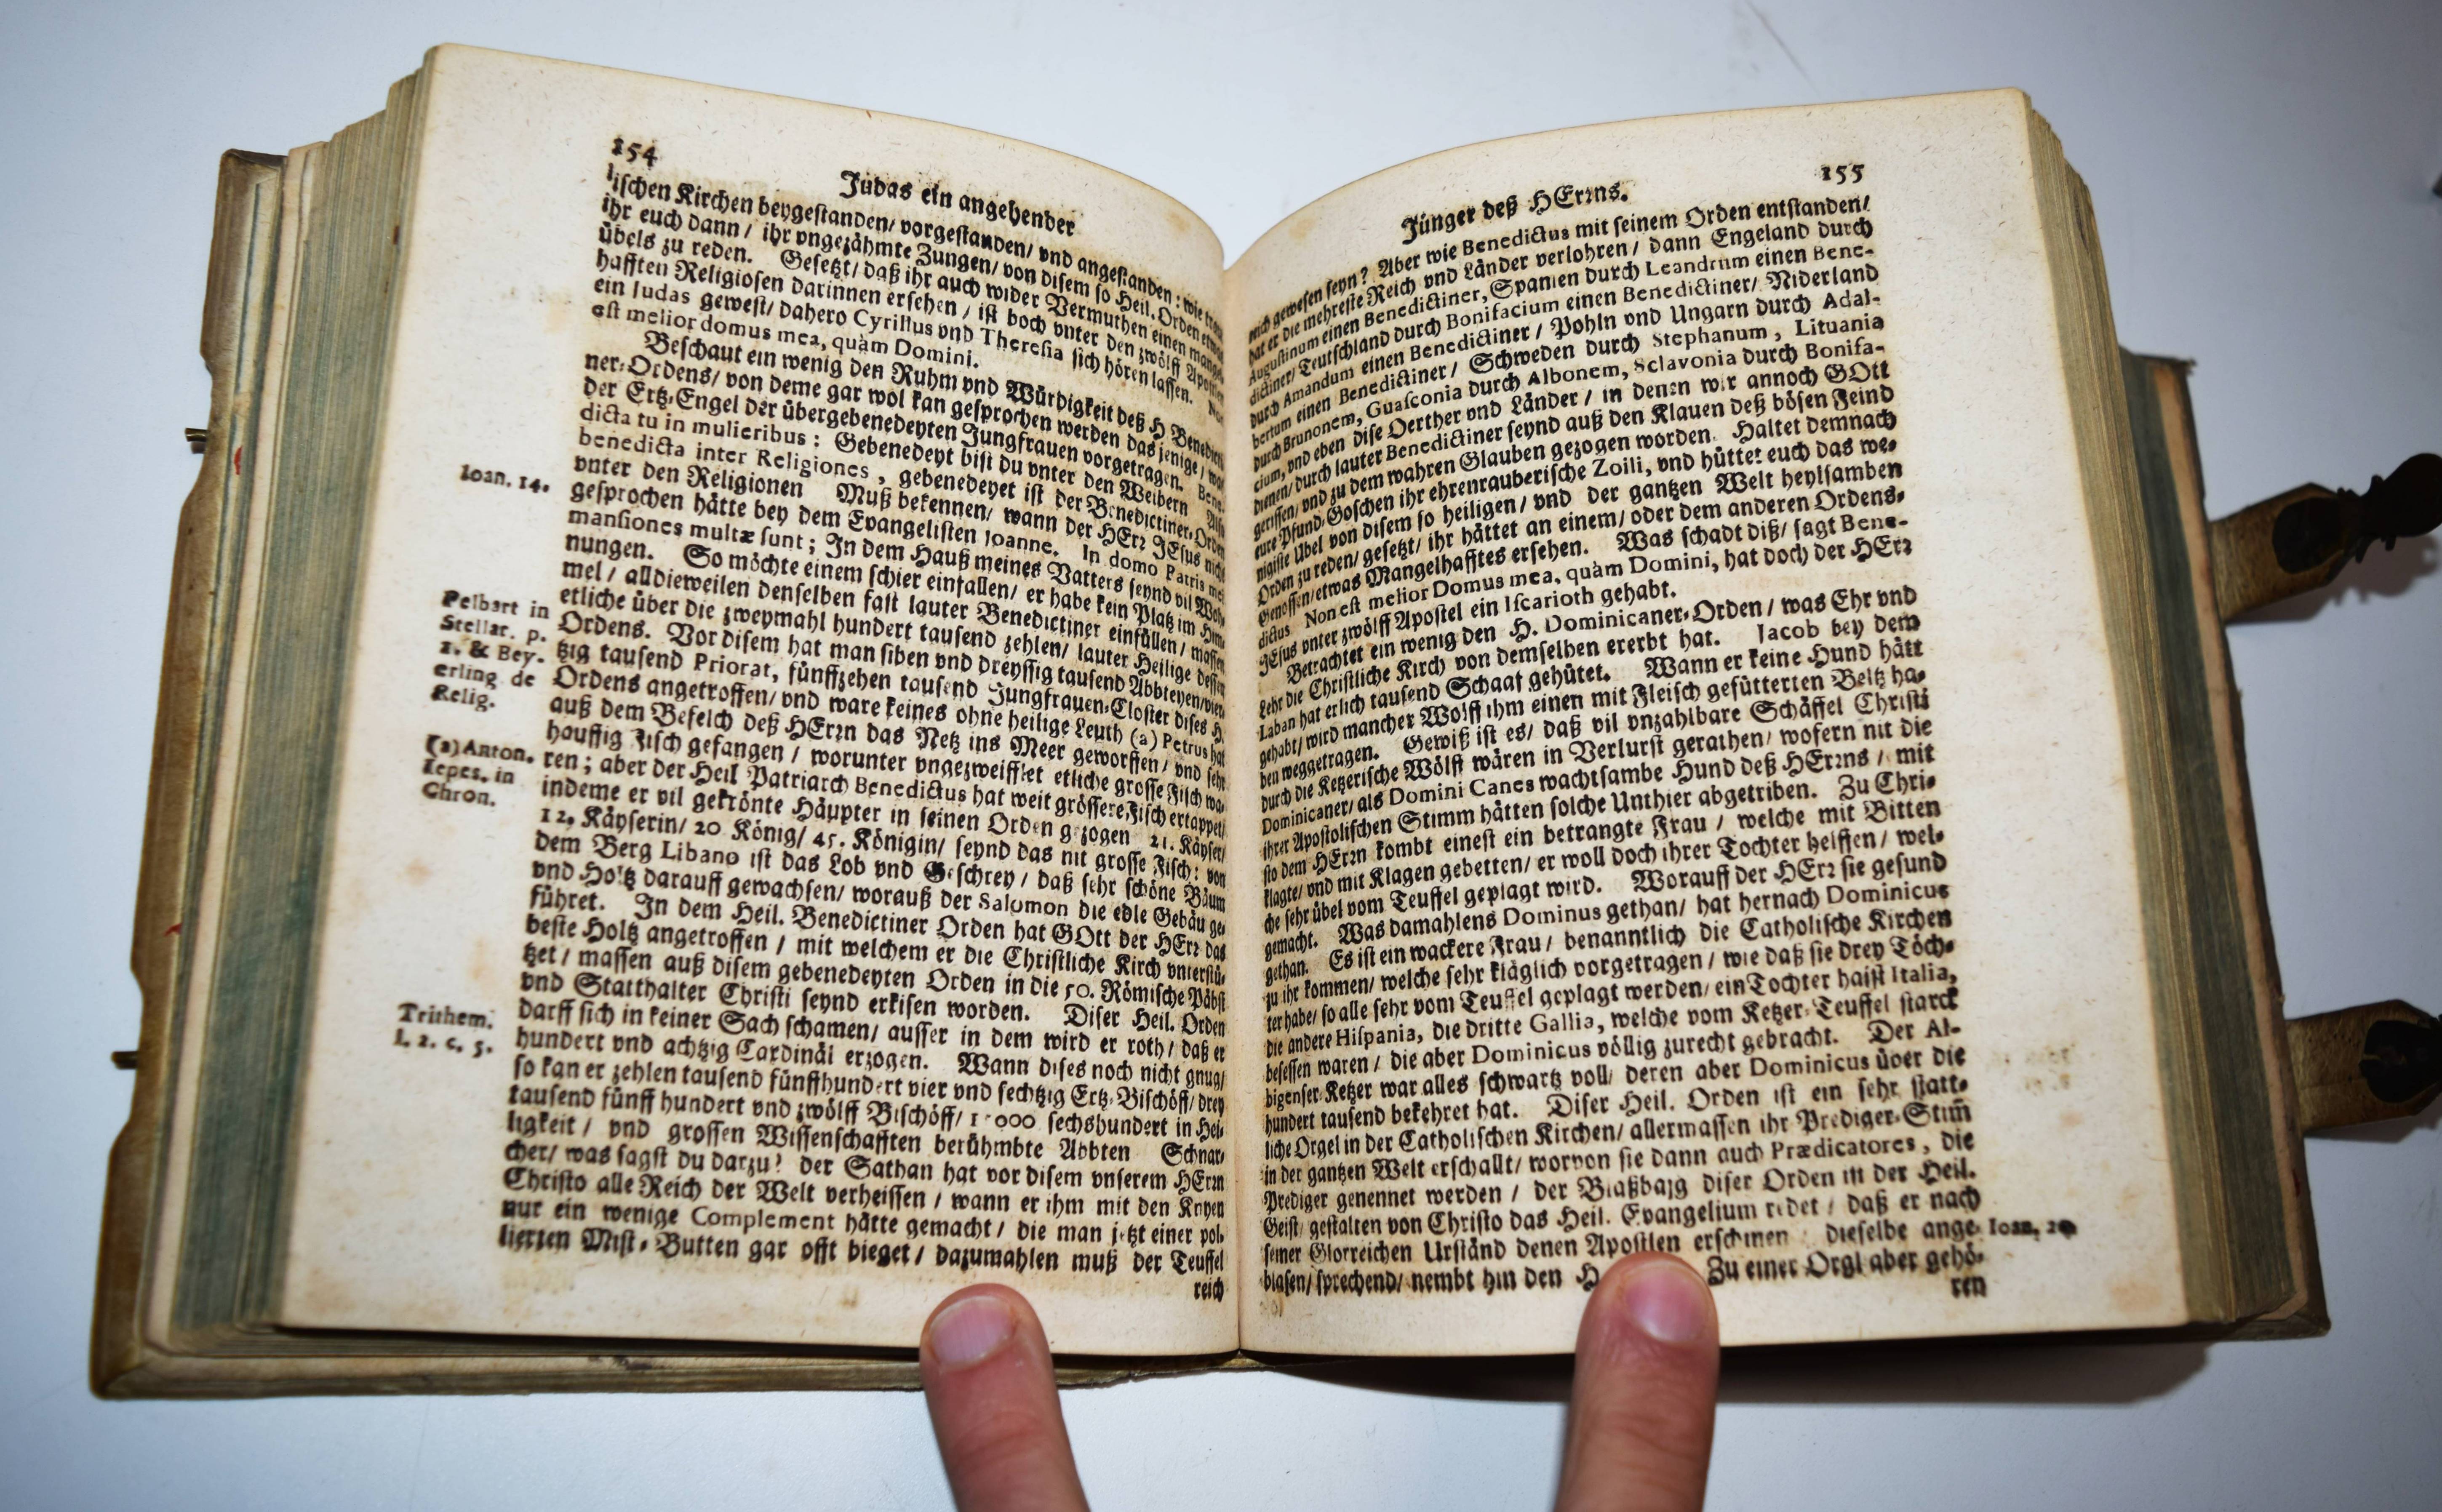 154
Judas ein angehender
lischen Kirchen beygestanden/ vorgestanden/ vnd angestanden: wie
ihr euch dann/ ihr vngezähmte Zungen/ von disem so Heil. Orden etwas
übels zu reden. Gesetzt/ daß ihr auch wider Vermuthen einen mangel-
hafften Religiosen darinnen ersehen/ ist doch vnter den zwölff Apostlen
ein Judas gewest/ dahero Cyrillus vnd Theresia sich hören lassen. Non
est melior domus mea, quàm Domini.
Beschaut ein wenig den Ruhm vnd Würdigkeit deß H. Benedicti-
ner-Ordens/ von deme gar wol kan gesprochen werden das jenige/ was
der Ertz-Engel der übergebenedeyten Jungfrauen vorgetragen. Bene-
dicta tu in mulieribus: Gebenedeyt bist du vnter den Weibern Also
benedicta inter Religiones, gebenedeyet ist der Benedictiner-Orden
vnter den Religionen Muß bekennen/ wann der HErr JEsus nicht
Ioan. 14.
gesprochen hätte bey dem Evangelisten Joanne. In domo Patris mei
mansiones multæ sunt; In dem Hauß meines Vatters seynd vil Woh-
nungen. So möchte einem schier einfallen/ er habe kein Platz im Him-
mel/ alldieweilen denselben fast lauter Benedictiner einfüllen/ massen
etliche über die zweymahl hundert tausend zehlen/ lauter Heilige dessen
Pelbart in
Stellar. p.
1. & Bey-
erling de
Relig.
Ordens. Vor disem hat man siben vnd dreyssig tausend Abbteyen/ vier-
tzig tausend Priorat, fünffzehen tausend Jungfrauen-Closter dises H.
Ordens angetroffen/ vnd ware keines ohne heilige Leuth (a) Petrus hat
auß dem Befelch deß HErrn das Netz ins Meer geworffen/ vnd sehr
hauffig Fisch gefangen/ worunter vngezweifflet etliche grosse Fisch wa-
(a) Anton.
Iepes. in
Chron.
ren; aber der Heil Patriarch Benedictus hat weit grössere Fisch ertappet/
indeme er vil gekrönte Häupter in seinen Orden gezogen 21. Käyser/
12. Käyserin/ 20 König/ 45. Königin/ seynd das nit grosse Fisch: von
dem Berg Libano ist das Lob vnd Geschrey/ daß sehr schöne Bäum
vnd Holtz darauff gewachsen/ worauß der Salomon die edle Gebäu ge-
führet. In dem Heil. Benedictiner Orden hat GOtt der HErr das
beste Holtz angetroffen/ mit welchem er die Christliche Kirch vnterstü-
tzet/ massen auß disem gebenedeyten Orden in die 50. Römische Päbst
vnd Statthalter Christi seynd erkisen worden. Diser Heil. Orden
Trithem.
l. 2. c. 5.
darff sich in keiner Sach schamen/ ausser in dem wird er roth/ daß er
hundert vnd achtzig Cardinäl erzogen. Wann dises noch nicht gnug/
so kan er zehlen tausend fünffhundert vier vnd sechtzig Ertz-Bischöff/ drey
tausend fünff hundert vnd zwölff Bischöff/ 000 sechshundert in Hei-
ligkeit/ vnd grossen Wissenschafften berühmbte Abbten Schnar-
cher/ was sagst du darzu? der Sathan hat vor disem vnserem HErrn
Christo alle Reich der Welt verheissen/ wann er ihm mit den Knyen
nur ein wenige Complement hätte gemacht/ die man jetzt einer pol-
lierten Mist-Butten gar offt bieget/ dazumahlen muß der Teuffel
reich
155
Jünger deß HErrns.
reich gewesen seyn? Aber wie Benedictus mit seinem Orden entstanden/
hat er die mehreste Reich vnd Länder verlohren/ dann Engeland durch
Augustinum einen Benedictiner, Spanien durch Leandrum einen Bene-
dictiner/ Teutschland durch Bonifacium einen Benedictiner/ Niderland
durch Amandum einen Benedictiner/ Pohln vnd Ungarn durch Adal-
bertum einen Benedictiner/ Schweden durch Stephanum, Lituania
durch Brunonem, Guasconia durch Albonem, Sclavonia durch Bonifa-
cium, vnd eben dise Oerther vnd Länder/ in denen wir annoch GOtt
dienen/ durch lauter Benedictiner seynd auß den Klauen deß bösen Feind
gerissen/ vnd zu dem wahren Glauben gezogen worden. Haltet demnach
eure Pfund-Goschen ihr ehrenrauberische Zoili, vnd hüttet euch das we-
nigiste Ubel von disem so heiligen/ vnd der gantzen Welt heylsamben
Orden zu reden/ gesetzt/ ihr hättet an einem/ oder dem anderen Ordens-
Genossen/ etwas Mangelhafftes ersehen. Was schadt diß/ sagt Bene-
dictus Non est melior Domus mea, quàm Domini, hat doch der HErr
JEsus vnter zwölff Apostel ein Iscarioth gehabt.
Betrachtet ein wenig den H. Dominicaner-Orden/ was Ehr vnd
Lehr die Christliche Kirch von demselben ererbt hat. Jacob bey dem
Laban hat erlich tausend Schaaf gehütet. Wann er keine Hund hätt
gehabt/ wird mancher Wolff ihm einen mit Fleisch gefütterten Beltz ha-
ben weggetragen. Gewiß ist es/ daß vil vnzahlbare Schäffel Christi
durch die Ketzerische Wölff wären in Verlurst gerathen/ wofern nit die
Dominicaner/ als Domini Canes wachtsambe Hund deß HErrns/ mit
ihrer Apostolischen Stimm hätten solche Unthier abgetriben. Zu Chri-
sto dem HErrn kombt einest ein betrangte Frau/ welche mit Bitten
klagte/ vnd mit Klagen gebetten/ er woll doch ihrer Tochter helffen/ wel-
che sehr übel vom Teuffel geplagt wird. Worauff der HErr sie gesund
gemacht. Was damahlens Dominus gethan/ hat hernach Dominicus
gethan. Es ist ein wackere Frau/ benanntlich die Catholische Kirchen
zu ihr kommen/ welche sehr kläglich vorgetragen/ wie daß sie drey Töch-
ter habe/ so alle sehr vom Teuffel geplagt werden/ ein Tochter haist Italia,
die andere Hispania, die dritte Gallia, welche vom Ketzer-Teuffel starck
besessen waren/ die aber Dominicus völlig zurecht gebracht. Der Al-
bigenser-Ketzer war alles schwartz voll/ deren aber Dominicus über die
hundert tausend bekehret hat. Diser Heil. Orden ist ein sehr statt-
liche Orgel in der Catholischen Kirchen/ allermassen ihr Prediger-Stim̃
in der gantzen Welt erschallt/ worvon sie dann auch Prædicatores, die
Prediger genennet werden/ der Blaßbalg diser Orden ist der Heil.
Geist/ gestalten von Christo das Heil. Evangelium redet/ daß er nach
seiner Glorreichen Urständ denen Apostlen erschinen dieselbe ange-
Ioan. 20
blasen/ sprechend/ nembt hin den H Zu einer Orgl aber gehö-
ren